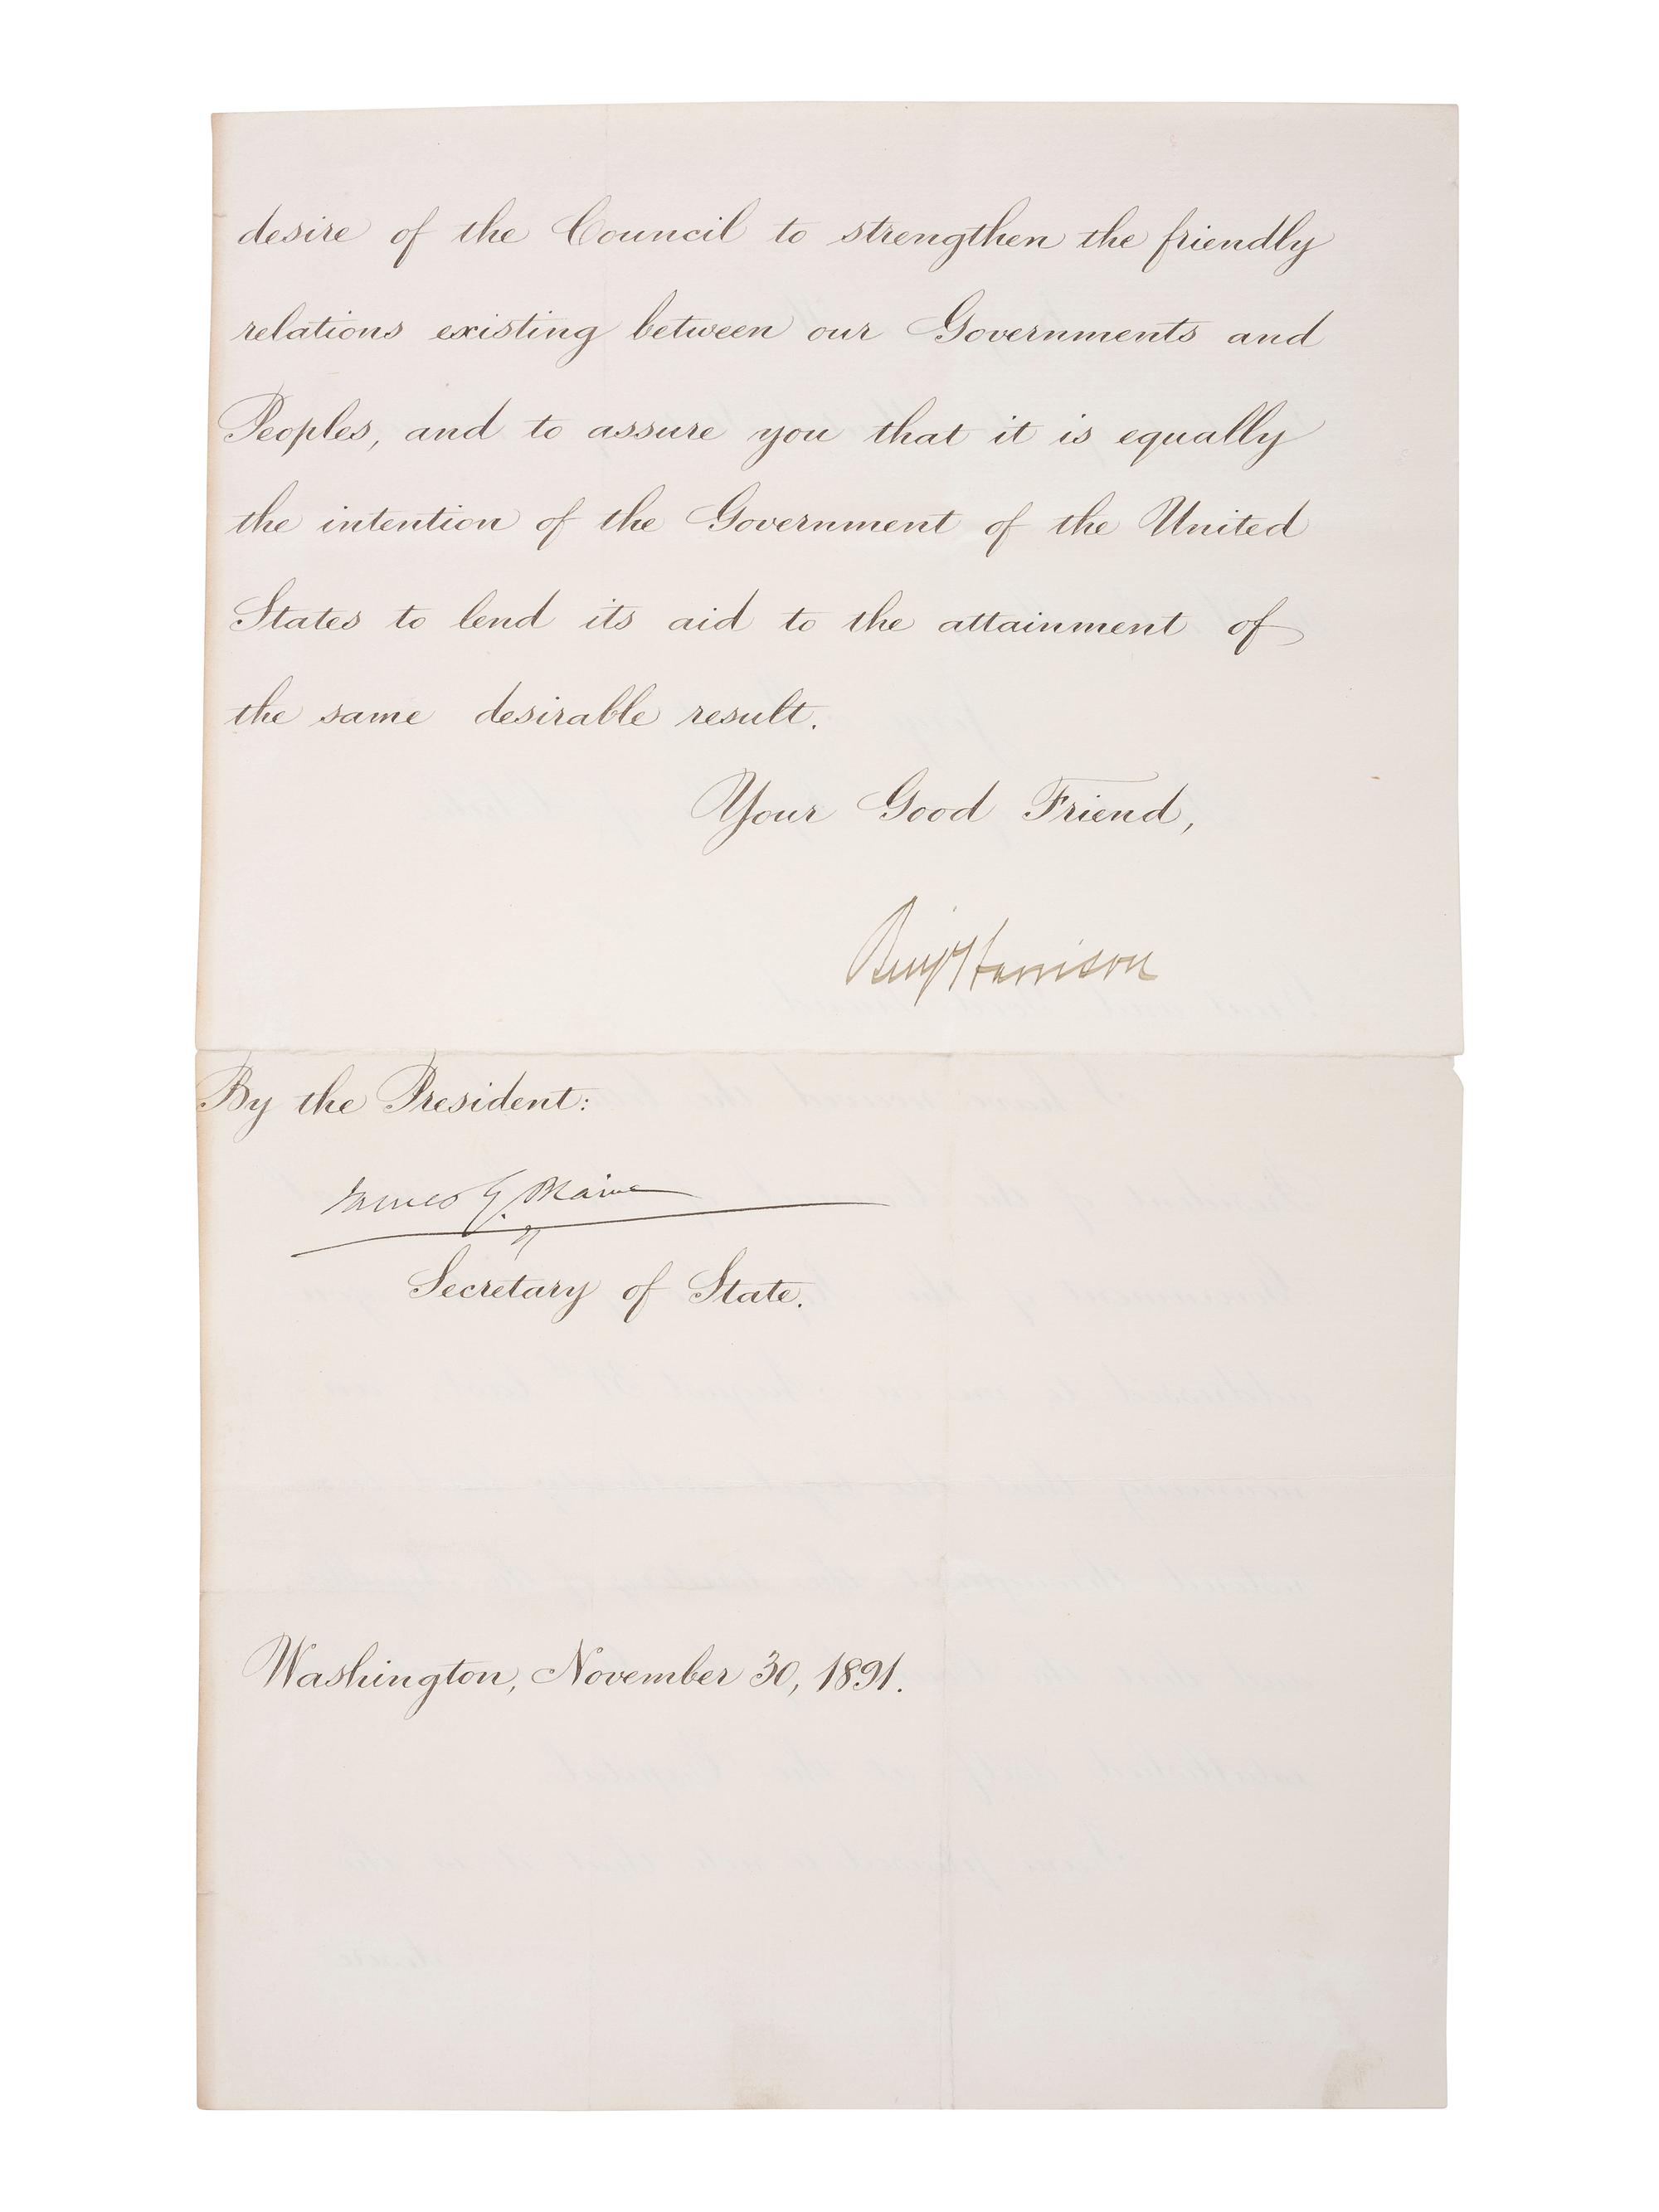 desire of the Council to strengthen the friendly
relations existing between our Governments and
Peoples, and to assure you that it is equally
the intention of the Government of the United
States to lend its aid to the attainment of
the same desirable result.
Your Good Friend,
Benj Harrison
By the President:
James G. Blaine
Secretary of State.
Washington, November 30, 1891.